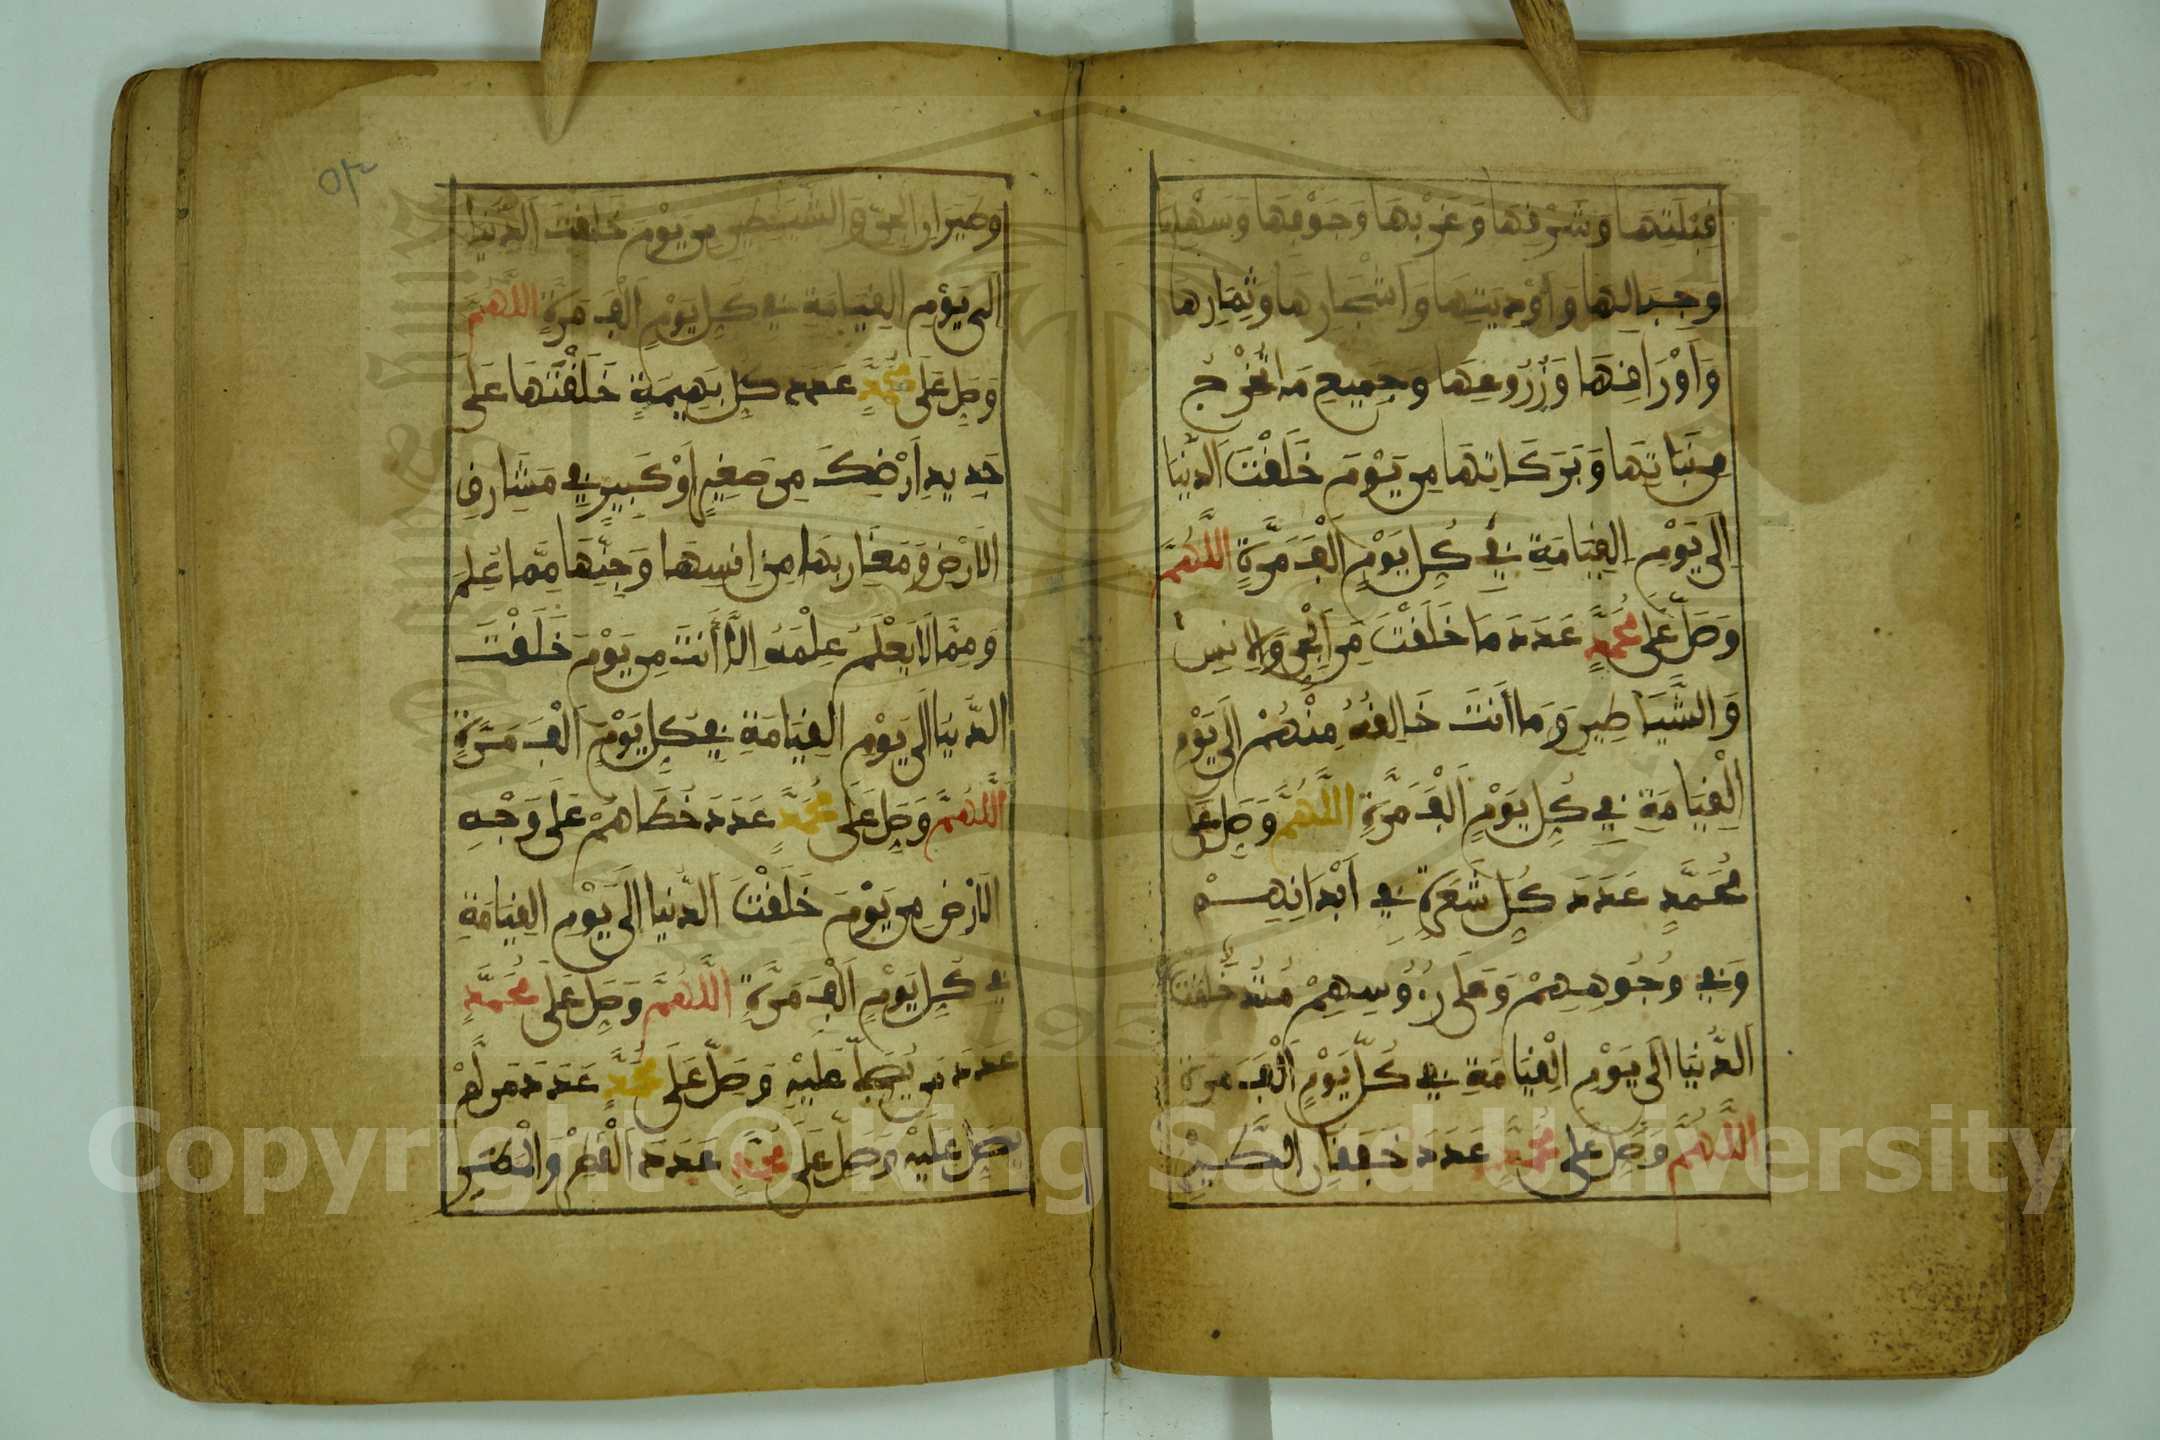 قبلتها وشرقها وغربها وجوفها وسهلها
وجبالها وأوديتها وأشجارها وثمارها
وَأَوْرَاقِهَا وَزُرُوعِهَا وجميع ما تخْرُجُ
من نباتها وبركاتها من يوم خلقت الدنيا
إلى يوم القيامة في كل يوم ألف مرة اللهم
وصل على محمد عدد ما خلقت من الجن والإنس
والشياطين وما أنت خالقه منهم إلى يوم
القيامة في كل يوم ألف مرة اللهم وصل على
محمد عدد كل شعرة في أبدانهم
وفي وجوههم وعلى رءوسهم منذ خلقت
الدنيا إلى يوم القيامة في كل يوم ألف مرة
اللهم وصل على محمد عدد خفقان الطير
٥٣
وطيران الجن والشياطين من يوم خلقت الدنيا
إلى يوم القيامة في كل يوم ألف مرة اللهم
وصل على محمد عدد كل بهيمة خلقتها على
جديد أرضك من صغير أو كبير في مشارق
الأرض ومغاربها من إنسها وجنها مما علم
ومما لا يعلم علمه إلا أنت من يوم خلقت
الدنيا إلى يوم القيامة في كل يوم ألف مرة
اللهم وصل على محمد عدد خطاهم على وجه
الأرض من يوم خلقت الدنيا إلى يوم القيامة
في كل يوم ألف مرة اللهم وصل على محمد
عدد من يصلي عليه وصل على محمد عدد من لم
يصل عليه وصل على محمد عدد القطر والمطر
Copyright © King Saud University
1957